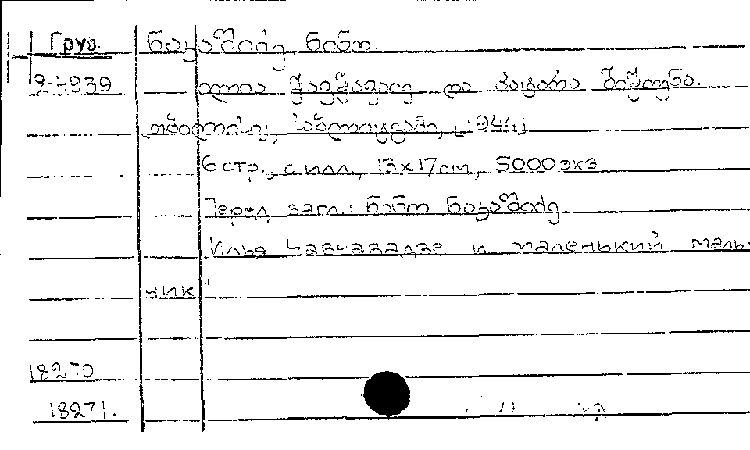 Груз. ნაკაშიძე ნინო.
9-4839 ილია ჭავჭავაძე და პატარა ბიჭუნა.
თბილისი, საბლიტგამი, [1944]
6 стр., с илл., 13x17 cm, 5000 экз
Перед загл.: ნინო ნაკაშიძე
Илья Чавчавадзе и маленький маль-
чик
18270
18271.